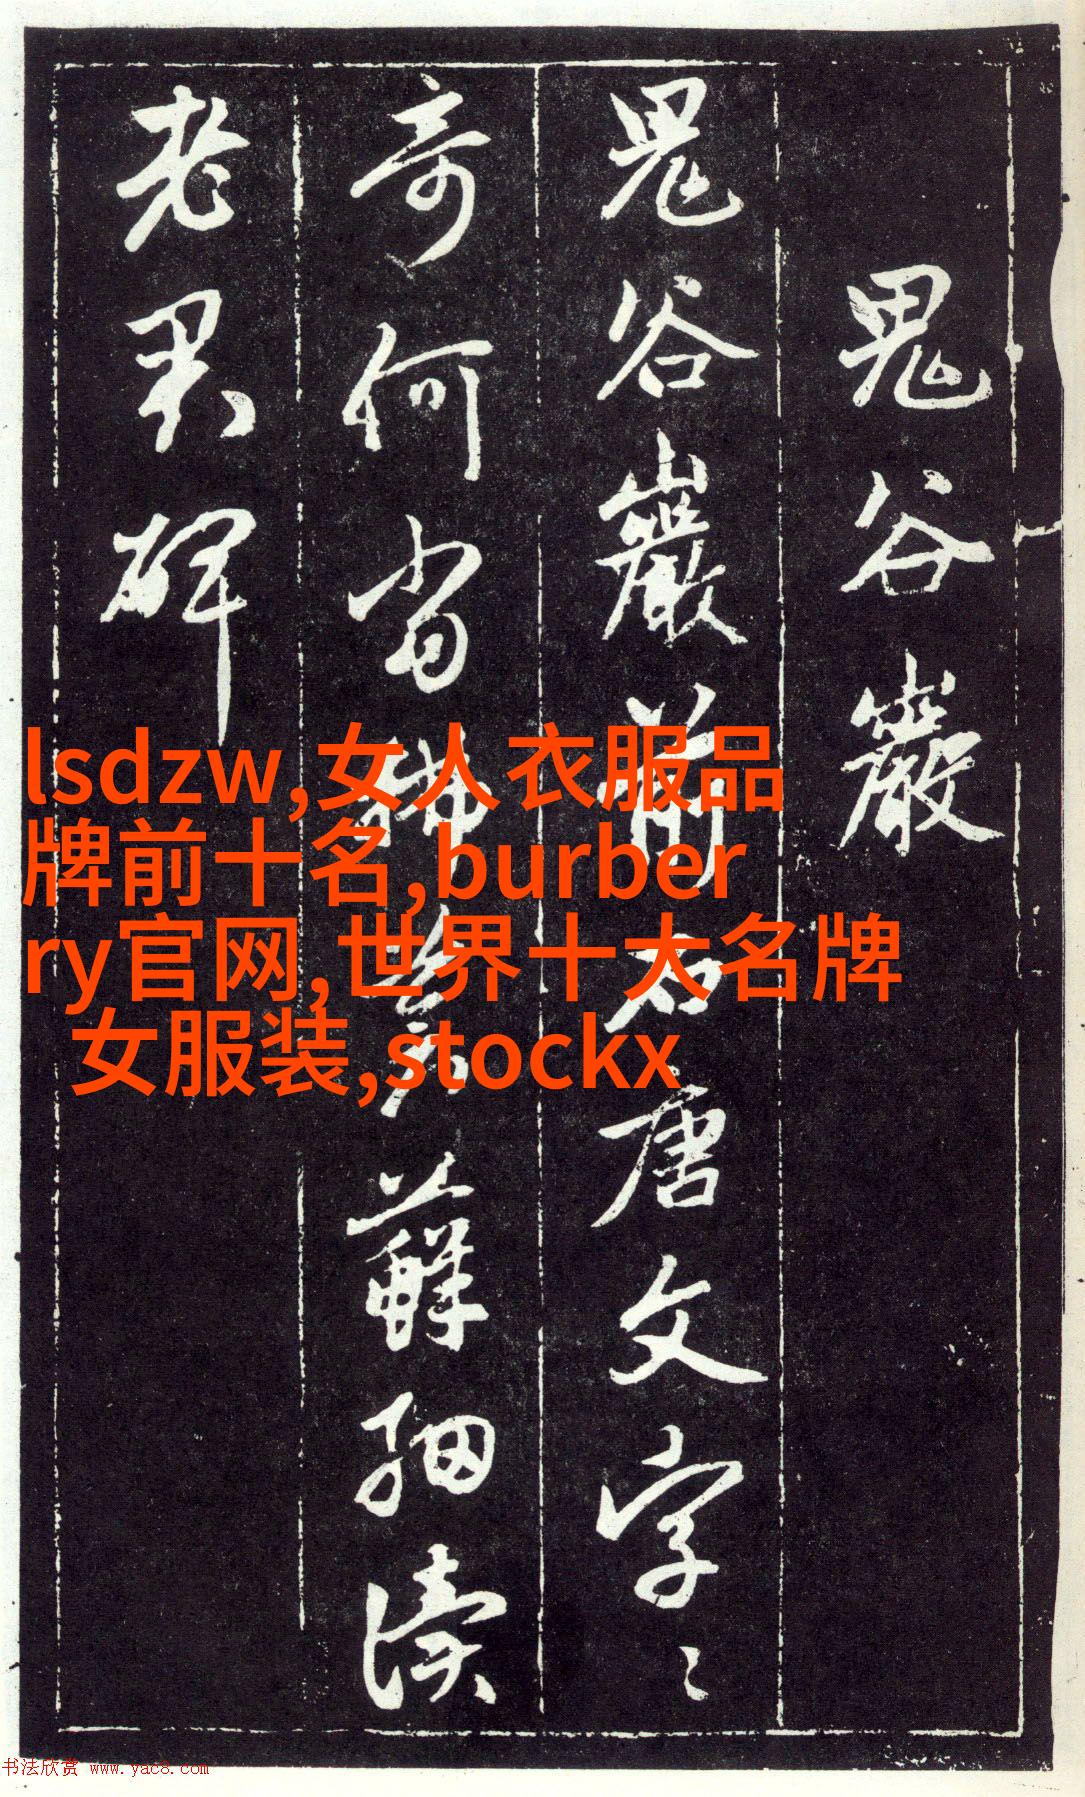 鬼谷巖
鬼谷巖前石唐文字〻
奇何當掃蘚細讀
老異碑
lsdzw,女人衣服品
牌前十名,burber
ry官网,世界十大名牌
女服装,stockx
书法欣赏 www.yac8.com